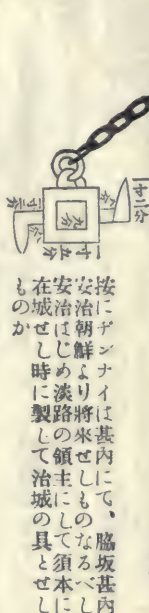 一寸二分
九分
一寸九分
按にヂンナイは甚内にて、脇坂甚内
安治朝鮮より將來せしものなるべし
安治はじめ淡路の領主にして須本に
在城せし時に製して治城の具とせし
ものか